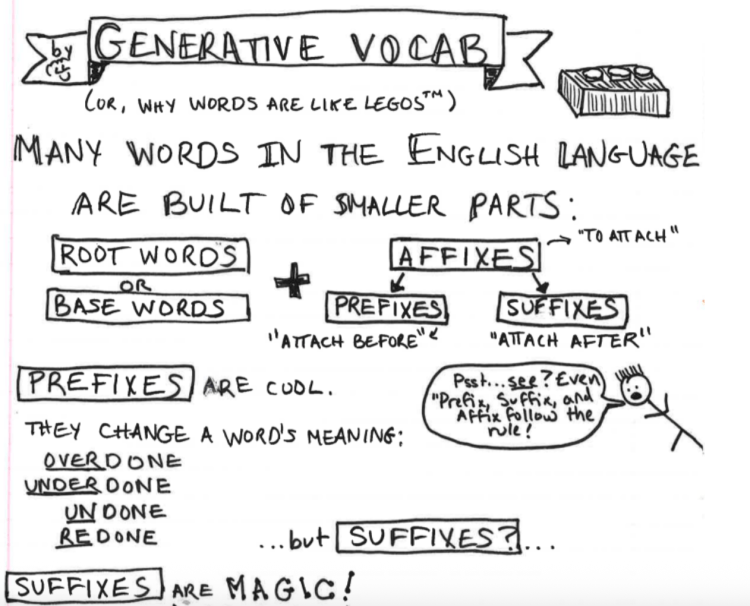 by
GENERATIVE VOCAB
(OR, WHY WORDS ARE LIKE LEGOS™)
MANY WORDS IN THE ENGLISH LANGUAGE
ARE BUILT OF SMALLER PARTS:
ROOT WORDS
OR
BASE WORDS
+
AFFIXES
"TO ATTACH"
PREFIXES
"ATTACH BEFORE"
SUFFIXES
"ATTACH AFTER"
PREFIXES ARE COOL.
THEY CHANGE A WORD'S MEANING:
OVERDONE
UNDERDONE
UNDONE
REDONE
Psst...see? Even
"Prefix, Suffix, and
Affix follow the
rule!
...but SUFFIXES?...
SUFFIXES ARE MAGIC!